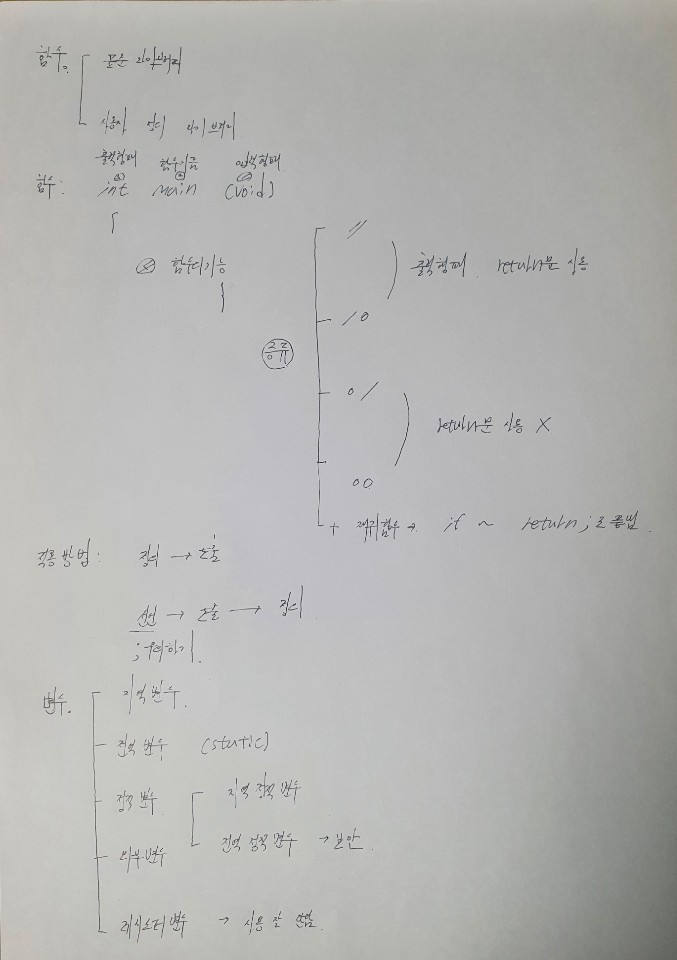 함수.
표준 라이브러리
사용자 정의 라이브러리
출력형태 함수이름 입력형태
함수: int main (void)
{
함수의기능
}
종류
//
/ O
출력형태 return문 사용
O /
O O
return문 사용 X
+ 재귀함수 → if ~ return ; 로
적용 방법: 정의 → 호출
선언 → 호출 → 정의
; 유의하기.
변수.
지역 변수
전역 변수 (static)
정적 변수
지역 정적 변수
전역 정적 변수 → 보안
외부 변수
레지스터 변수 → 사용 잘 안함.